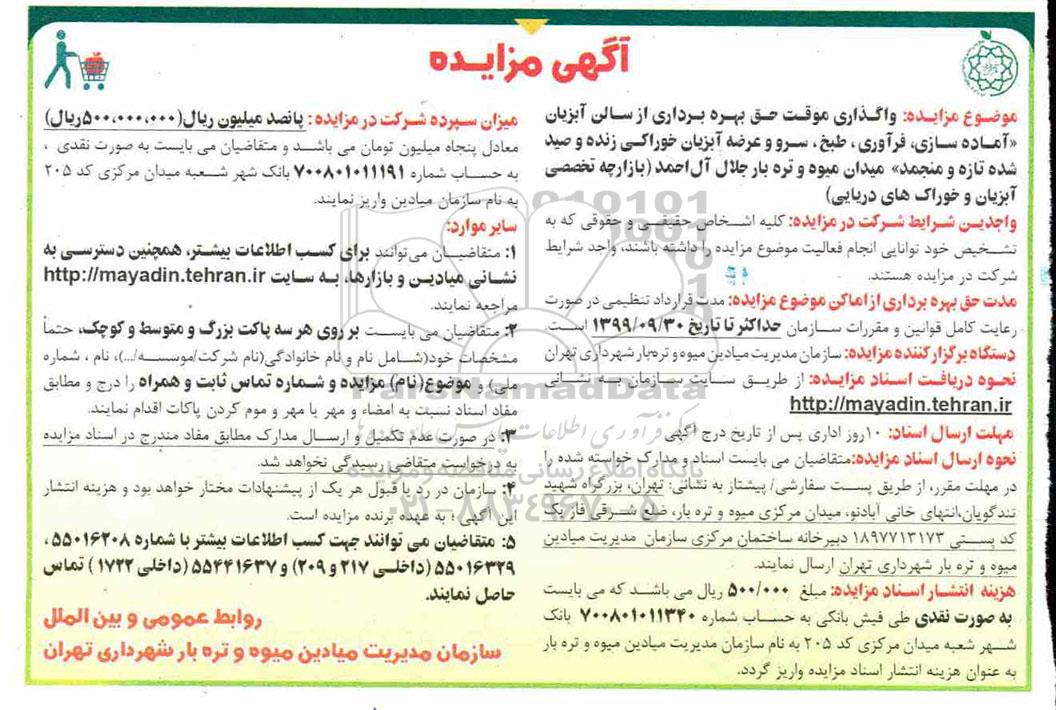 آگهی مزایده
موضوع مزایده: واگذاری موقت حق بهره برداری از سالن آبزیان
«آماده سازی، فرآوری، طبخ، سرو و عرضه آبزیان خوراکی زنده و صید
شده تازه و منجمد» میدان میوه و تره بار جلال آل‌احمد (بازارچه تخصصی
آبزیان و خوراک های دریایی)
واجدین شرایط شرکت در مزایده: کلیه اشخاص حقیقی و حقوقی که به
تشخیص خود توانایی انجام فعالیت موضوع مزایده را داشته باشند، واجد شرایط
شرکت در مزایده هستند.
مدت حق بهره برداری از اماکن موضوع مزایده: مدت قرارداد تنظیمی در صورت
رعایت کامل قوانین و مقررات سازمان حداکثر تا تاریخ ۱۳۹۹/۰۹/۳۰ است.
دستگاه برگزار کننده مزایده: سازمان مدیریت میادین میوه و تره‌بار شهرداری تهران
نحوه دریافت اسناد مزایده: از طریق سایت سازمان به نشانی
http://mayadin.tehran.ir
مهلت ارسال اسناد: ۱۰روز اداری پس از تاریخ درج آگهی
نحوه ارسال اسناد مزایده:متقاضیان می بایست اسناد و مدارک خواسته شده را
در مهلت مقرر، از طریق پست سفارشی/ پیشتاز به نشانی: تهران، بزرگراه شهید
تندگویان،انتهای خانی آبادنو، میدان مرکزی میوه و تره بار، ضلع شرقی فاز یک
کد پستی ۱۸۹۷۷۱۳۱۷۳ دبیرخانه ساختمان مرکزی سازمان مدیریت میادین
میوه و تره بار شهرداری تهران ارسال نمایند.
هزینه انتشار اسناد مزایده: مبلغ ۵۰۰/۰۰۰ ریال می باشد که می بایست
به صورت نقدی طی فیش بانکی به حساب شماره ۷۰۰۸۰۱۰۱۱۳۴۰ بانک
شهر شعبه میدان مرکزی کد ۲۰۵ به نام سازمان مدیریت میادین میوه و تره بار
به عنوان هزینه انتشار اسناد مزایده واریز گردد.
میزان سپرده شرکت در مزایده : پانصد میلیون ریال(۵۰۰،۰۰۰،۰۰۰ریال)
معادل پنجاه میلیون تومان می باشد و متقاضیان می بایست به صورت نقدی ،
به حساب شماره ۷۰۰۸۰۱۰۱۱۱۹۱ بانک شهر شعبه میدان مرکزی کد ۲۰۵
به نام سازمان میادین واریز نمایند.
سایر موارد:
۱: متقاضیان می‌توانند برای کسب اطلاعات بیشتر، همچنین دسترسی به
نشانی میادین و بازارها، به سایت http://mayadin.tehran.ir
مراجعه نمایند.
۲: متقاضیان می بایست بر روی هر سه پاکت بزرگ و متوسط و کوچک، حتماً
مشخصات خود(شامل نام و نام خانوادگی(نام شرکت/موسسه/...)، نام ، شماره
ملی) و موضوع(نام) مزایده و شماره تماس ثابت و همراه را درج و مطابق
مفاد اسناد نسبت به امضاء و مهر یا مهر و موم کردن پاکات اقدام نمایند.
۳: در صورت عدم تکمیل و ارسال مدارک مطابق مفاد مندرج در اسناد مزایده
به درخواست متقاضی رسیدگی نخواهد شد.
۴: سازمان در رد یا قبول هر یک از پیشنهادات مختار خواهد بود و هزینه انتشار
این آگهی ، به عهده برنده مزایده است.
۵: متقاضیان می توانند جهت کسب اطلاعات بیشتر با شماره ۵۵۰۱۶۲۰۸،
۵۵۰۱۶۳۲۹ (داخلی ۲۱۷ و ۲۰۹) و ۵۵۴۴۱۶۳۷ (داخلی ۱۷۲۲ ) تماس
حاصل نمایند.
روابط عمومی و بین الملل
سازمان مدیریت میادین میوه و تره بار شهرداری تهران
ParsNamadData
پایگاه اطلاع رسانی مناقصه و مزایده
۰۲۱-۸۸۳۴۹۶۷۰-۵